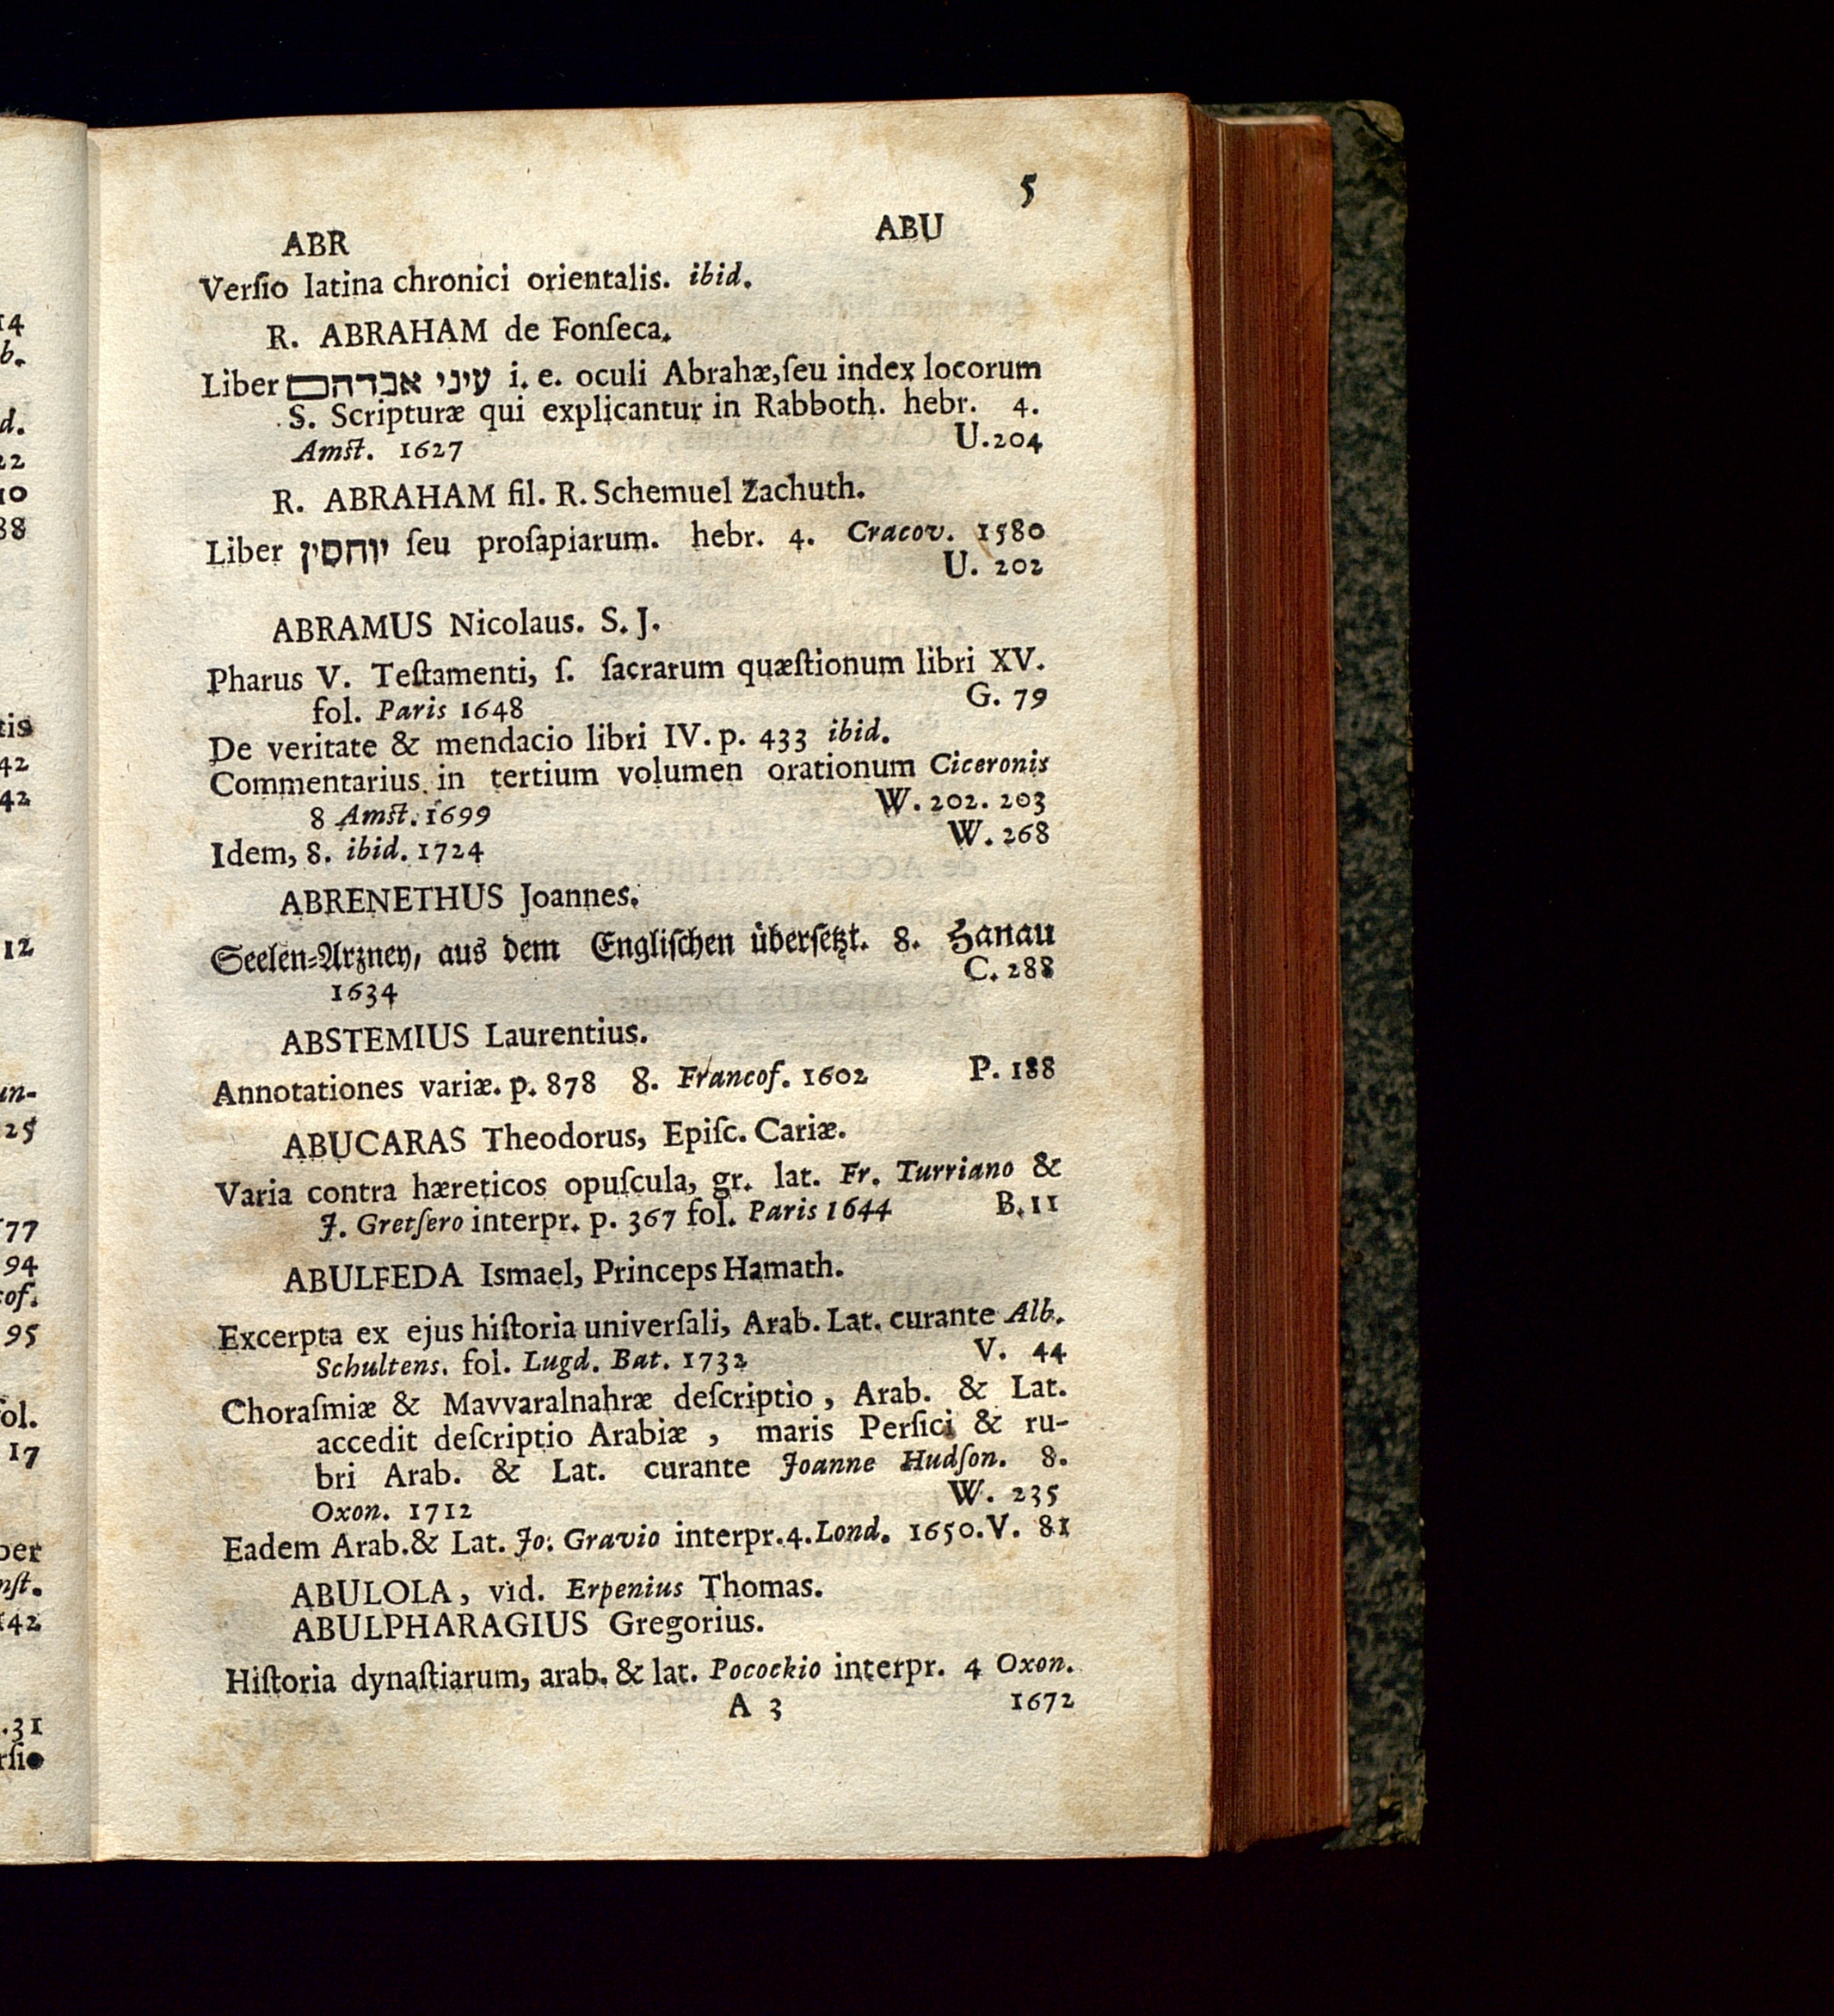 5
ABR ABU
Verſio latina chronici orientalis. ibid.
R. ABRAHAM de Fonſeca.
Liber עיני אברהם i. e. oculi Abrahæ, ſeu index locorum
S. Scripturæ qui explicantur in Rabboth. hebr. 4.
Amſt. 1627 U. 204
R. ABRAHAM fil. R. Schemuel Zachuth.
Liber יוחסין ſeu proſapiarum. hebr. 4. Cracov. 1580
U. 202
ABRAMUS Nicolaus. S. J.
Pharus V. Teſtamenti, ſ. ſacrarum quæſtionum libri XV.
fol. Paris 1648 G. 79
De veritate & mendacio libri IV. p. 433 ibid.
Commentarius in tertium volumen orationum Ciceronis
8 Amſt. 1699 W. 202. 203
Idem, 8. ibid. 1724 W. 268
ABRENETHUS Joannes.
Seelen-Arzney, aus dem Engliſchen überſetzt. 8. Hanau
1634 C. 288
ABSTEMIUS Laurentius.
Annotationes variæ. p. 878 8. Francof. 1602 P. 188
ABUCARAS Theodorus, Epiſc. Cariæ.
Varia contra hæreticos opuſcula, gr. lat. Fr. Turriano &
J. Gretſero interpr. p. 367 fol. Paris 1644 B. 11
ABULFEDA Ismael, Princeps Hamath.
Excerpta ex ejus hiſtoria univerſali, Arab. Lat. curante Alb.
Schultens. fol. Lugd. Bat. 1732 V. 44
Choraſmiæ & Mavvaralnahræ deſcriptio, Arab. & Lat.
accedit deſcriptio Arabiæ, maris Perſici & ru-
bri Arab. & Lat. curante Joanne Hudſon. 8.
Oxon. 1712 W. 235
Eadem Arab. & Lat. Jo: Gravio interpr. 4. Lond. 1650. V. 81
ABULOLA, vid. Erpenius Thomas.
ABULPHARAGIUS Gregorius.
Hiſtoria dynaſtiarum, arab. & lat. Pocockio interpr. 4 Oxon.
A 3 1672